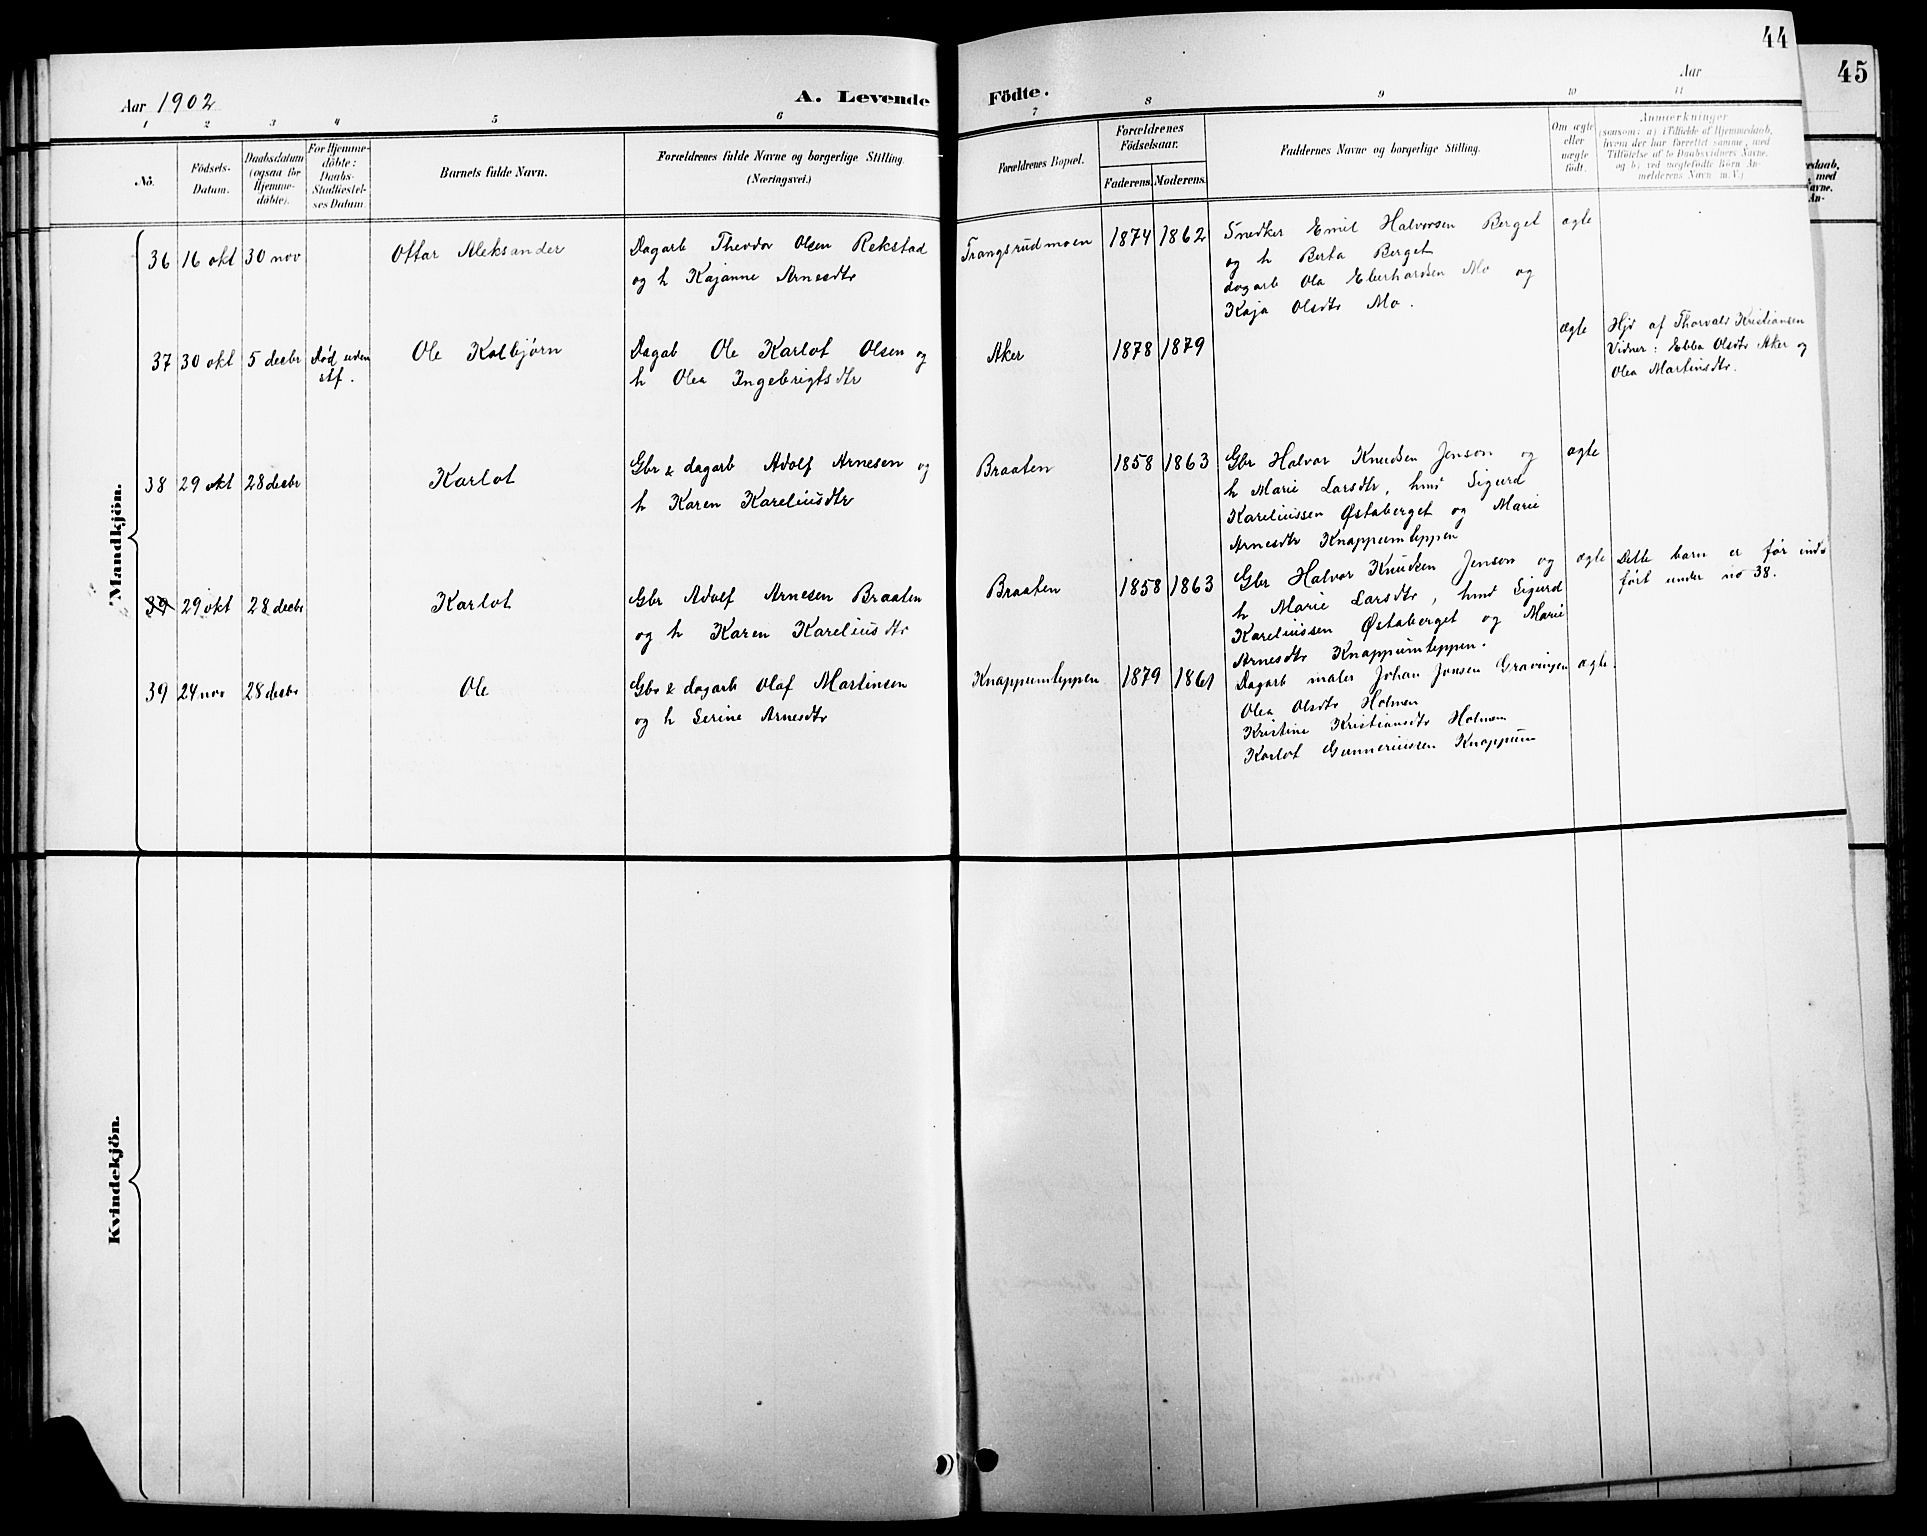 44
45
Aar 1902
A. Levende
Födte.
Aar
1 2 3 4 5 6 7 8 9 10 11
No.
Födsels-
Datum.
Daabsdatum
(ogsaa for
Hjemme-
döbte).
For Hjemme-
döbte:
Daabs-
Stadfæstel-
ses Datum.
Barnets fulde Navn.
Forældrenes fulde Navne og borgerlige Stilling.
(Næringsvei.)
Forældrenes Bopæl.
Forældrenes
Födselsaar.
Faderens. Moderens.
Faddernes Navne og borgerlige Stilling.
Om ægte
eller
uægte
født.
Anmærkninger
(saasom: a) i Tilfælde af Hjemmedaab,
hvem der har forrettet samme, med
Tilföielse af to Daabsvidners Navne,
og b) ved uægtefödte Börn An-
melderens Navn m. V.)
Mandkjön.
36 16 okt 30 nov
Ottar Aleksander
Dagarb Theodor Olsen Rekstad
og h Kajanne Arnesdtr
Trangsrudmoen
1874 1862
Snedker Emil Halvorsen Berget
og h Berta Berget
dagarb Ola Eberhardsen Mo og
Kaja Olsdtr Mo.
ægte
37 30 okt 5 desbr
Død uden
stf.
Ole Kolbjørn
Dagab Ole Karlot Olsen og
h Olea Ingebrigtsdtr
Aker
1878 1879
ægte
Hjd af Thorvald Kristiansen
Vidner: Ebba Olsdtr Aker og
Olea Martinsdtr.
38 29 okt 28 desbr
Karlot
Gbr & dagarb Adolf Arnesen og
h Karen Kareliusdtr
Braaten
1858 1863
Gbr Halvor Knudsen Jenson og
h Marie Larsdtr, hmd Sigurd
Kareliussen Østaberget og Marie
Arnesdtr Knappumteppen
ægte
39 29 okt 28 desbr
Karlot
Gbr Adolf Arnesen Braaten
og h Karen Kareliusdtr
Braaten
1858 1863
Gbr Halvor Knudsen Jenson og
h Marie Larsdtr, hmd Sigurd
Kareliussen Østaberget og Marie
Arnesdtr Knappumteppen.
ægte
Dette barn er før ind-
ført under no 38.
39 24 nov 28 desbr
Ole
Gbr & dagarb Olaf Martinsen
og h Serine Arnesdtr
Knappumteppen
1879 1861
Dagarb maler Johan Jonsen Gravingen
Olea Olsdtr Holmen
Kristine Kristiansdtr Holmen
Karlot Gunneriussen Knappum
ægte.
Kvindekjön.